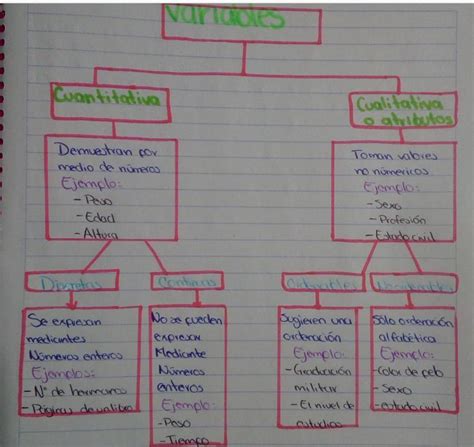 Variables
Cuantitativa
Cualitativa
o atributos
Demuestran por
medio de números
Ejemplo:
- Peso
- Edad
- Altura
Toman valores
no númericos
Ejemplo:
- Sexo
- Profesión
- Estado civil
Discretas
Continuas
Ordenables
No ordenables
Se expresan
mediantes
Números enteros
Ejemplos:
- N° de hermanos
- Páginas de un libro
No se pueden
expresar
Mediante
Números
enteros
Ejemplo:
- Peso
- Tiempo
Sugieren una
ordenación
Ejemplo:
- Graduación
militar
- El nivel de
estudios
Sólo ordenación
alfabética
Ejemplo:
- Color de pelo
- Sexo
- estado civil